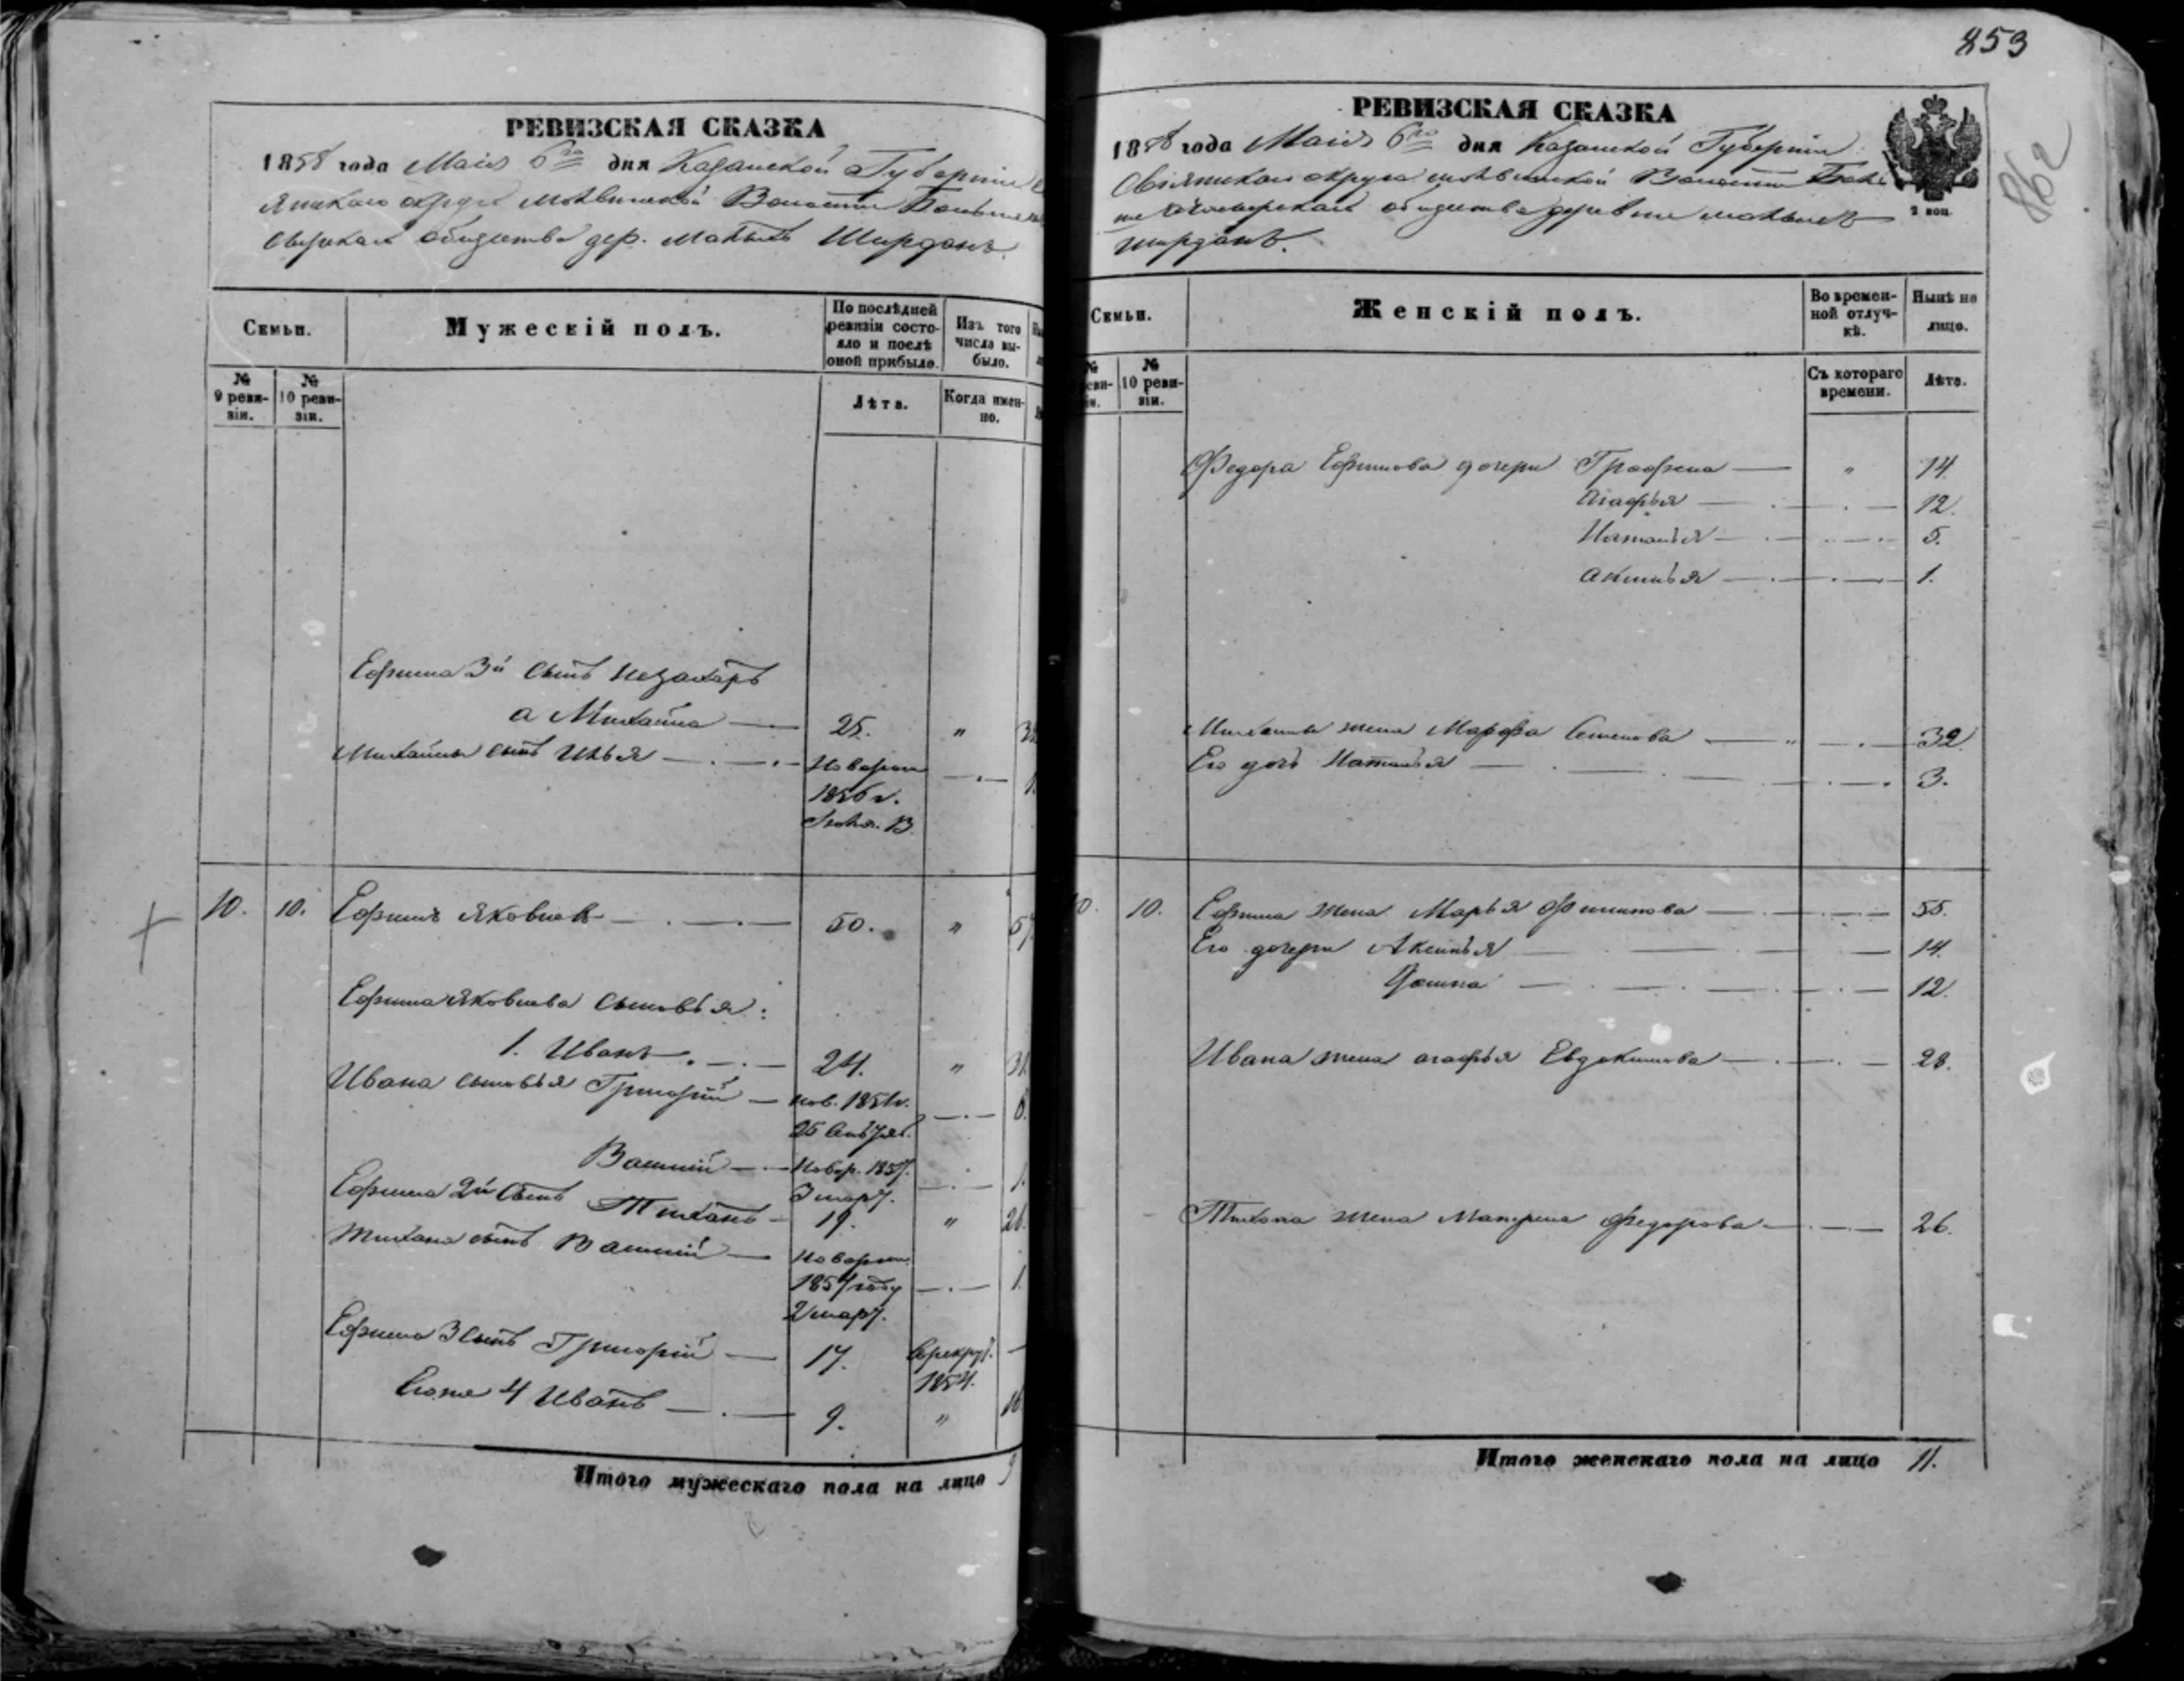 853
862
РЕВИЗСКАЯ СКАЗКА
1858 года Маія 6го дня Казанской Губерніи
Волости
общества дер. Малыхъ Ширданъ.
Семьи.
Мужескій полъ.
По послѣдней ревизіи состояло и послѣ оной прибыло.
Изъ того числа выбыло.
№ 9 ревизіи.
№ 10 ревизіи.
Лѣта.
Когда именно.
Ефима 3й сынъ Назахаръ
а Михайла — 25. "
Михайлы сынъ Илья — Новорож
1856 г.
10. 10. Ефимъ Яковлевъ — 50. " 57
Ефима Яковлева сыновья:
1. Иванъ — 24. " 31
Ивана сыновья Григорій — нов. 1851 г.
25
Василій — Новор. 1857. 1.
3 мар.
Ефима 2й сынъ Тихонъ — 19. " 26
Тихона сынъ Василій — Новорож
1857 году 1.
2 мар.
Ефима 3 сынъ Григорій — 17. Врекрут. —
1854.
Его же 4 Иванъ — 9. " 16
Итого мужескаго пола на лицо 9
РЕВИЗСКАЯ СКАЗКА
1858 года Маія 6го дня Казанской Губерніи
Свіяжскаго округа Волости
общества деревни Малыхъ
Ширданъ.
2 коп
Семьи.
Женскій полъ.
Во временной отлучкѣ.
Нынѣ на лицо.
№ 10 ревизіи.
Съ котораго времени.
Лѣта.
Федора Ефимова дочери Графена — " 14.
Агафья — 12.
Наталья — 5.
Аксинья — 1.
Михайлы жена Марфа Семенова — " — 32.
Его дочь Наталья — 3.
10. 10. Ефима жена Марья Филипова — 55.
Его дочери Аксинья — 14.
— 12.
Ивана жена Агафья Евдокимова — 28.
Тихона жена Матрена Федорова — 26.
Итого женскаго пола на лицо 11.